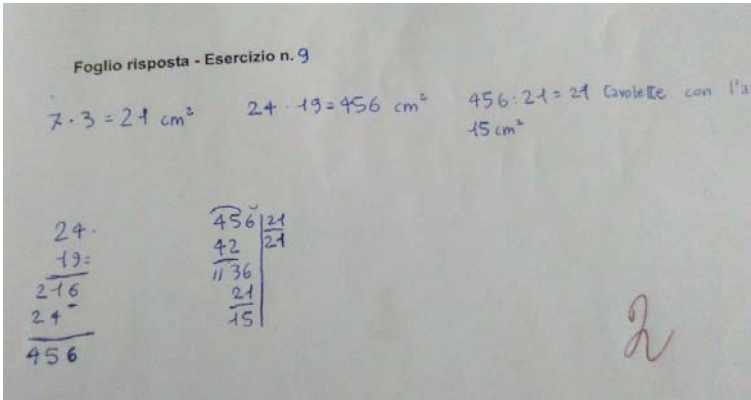 Foglio risposta - Esercizio n. 9
7 · 3 = 21 cm²
24 · 19 = 456 cm²
456 : 21 = 21 tavolette con l'a
15 cm²
24 ·
19 =
216
24 -
456
456 | 21
42 | 21
// 36
21
15
2